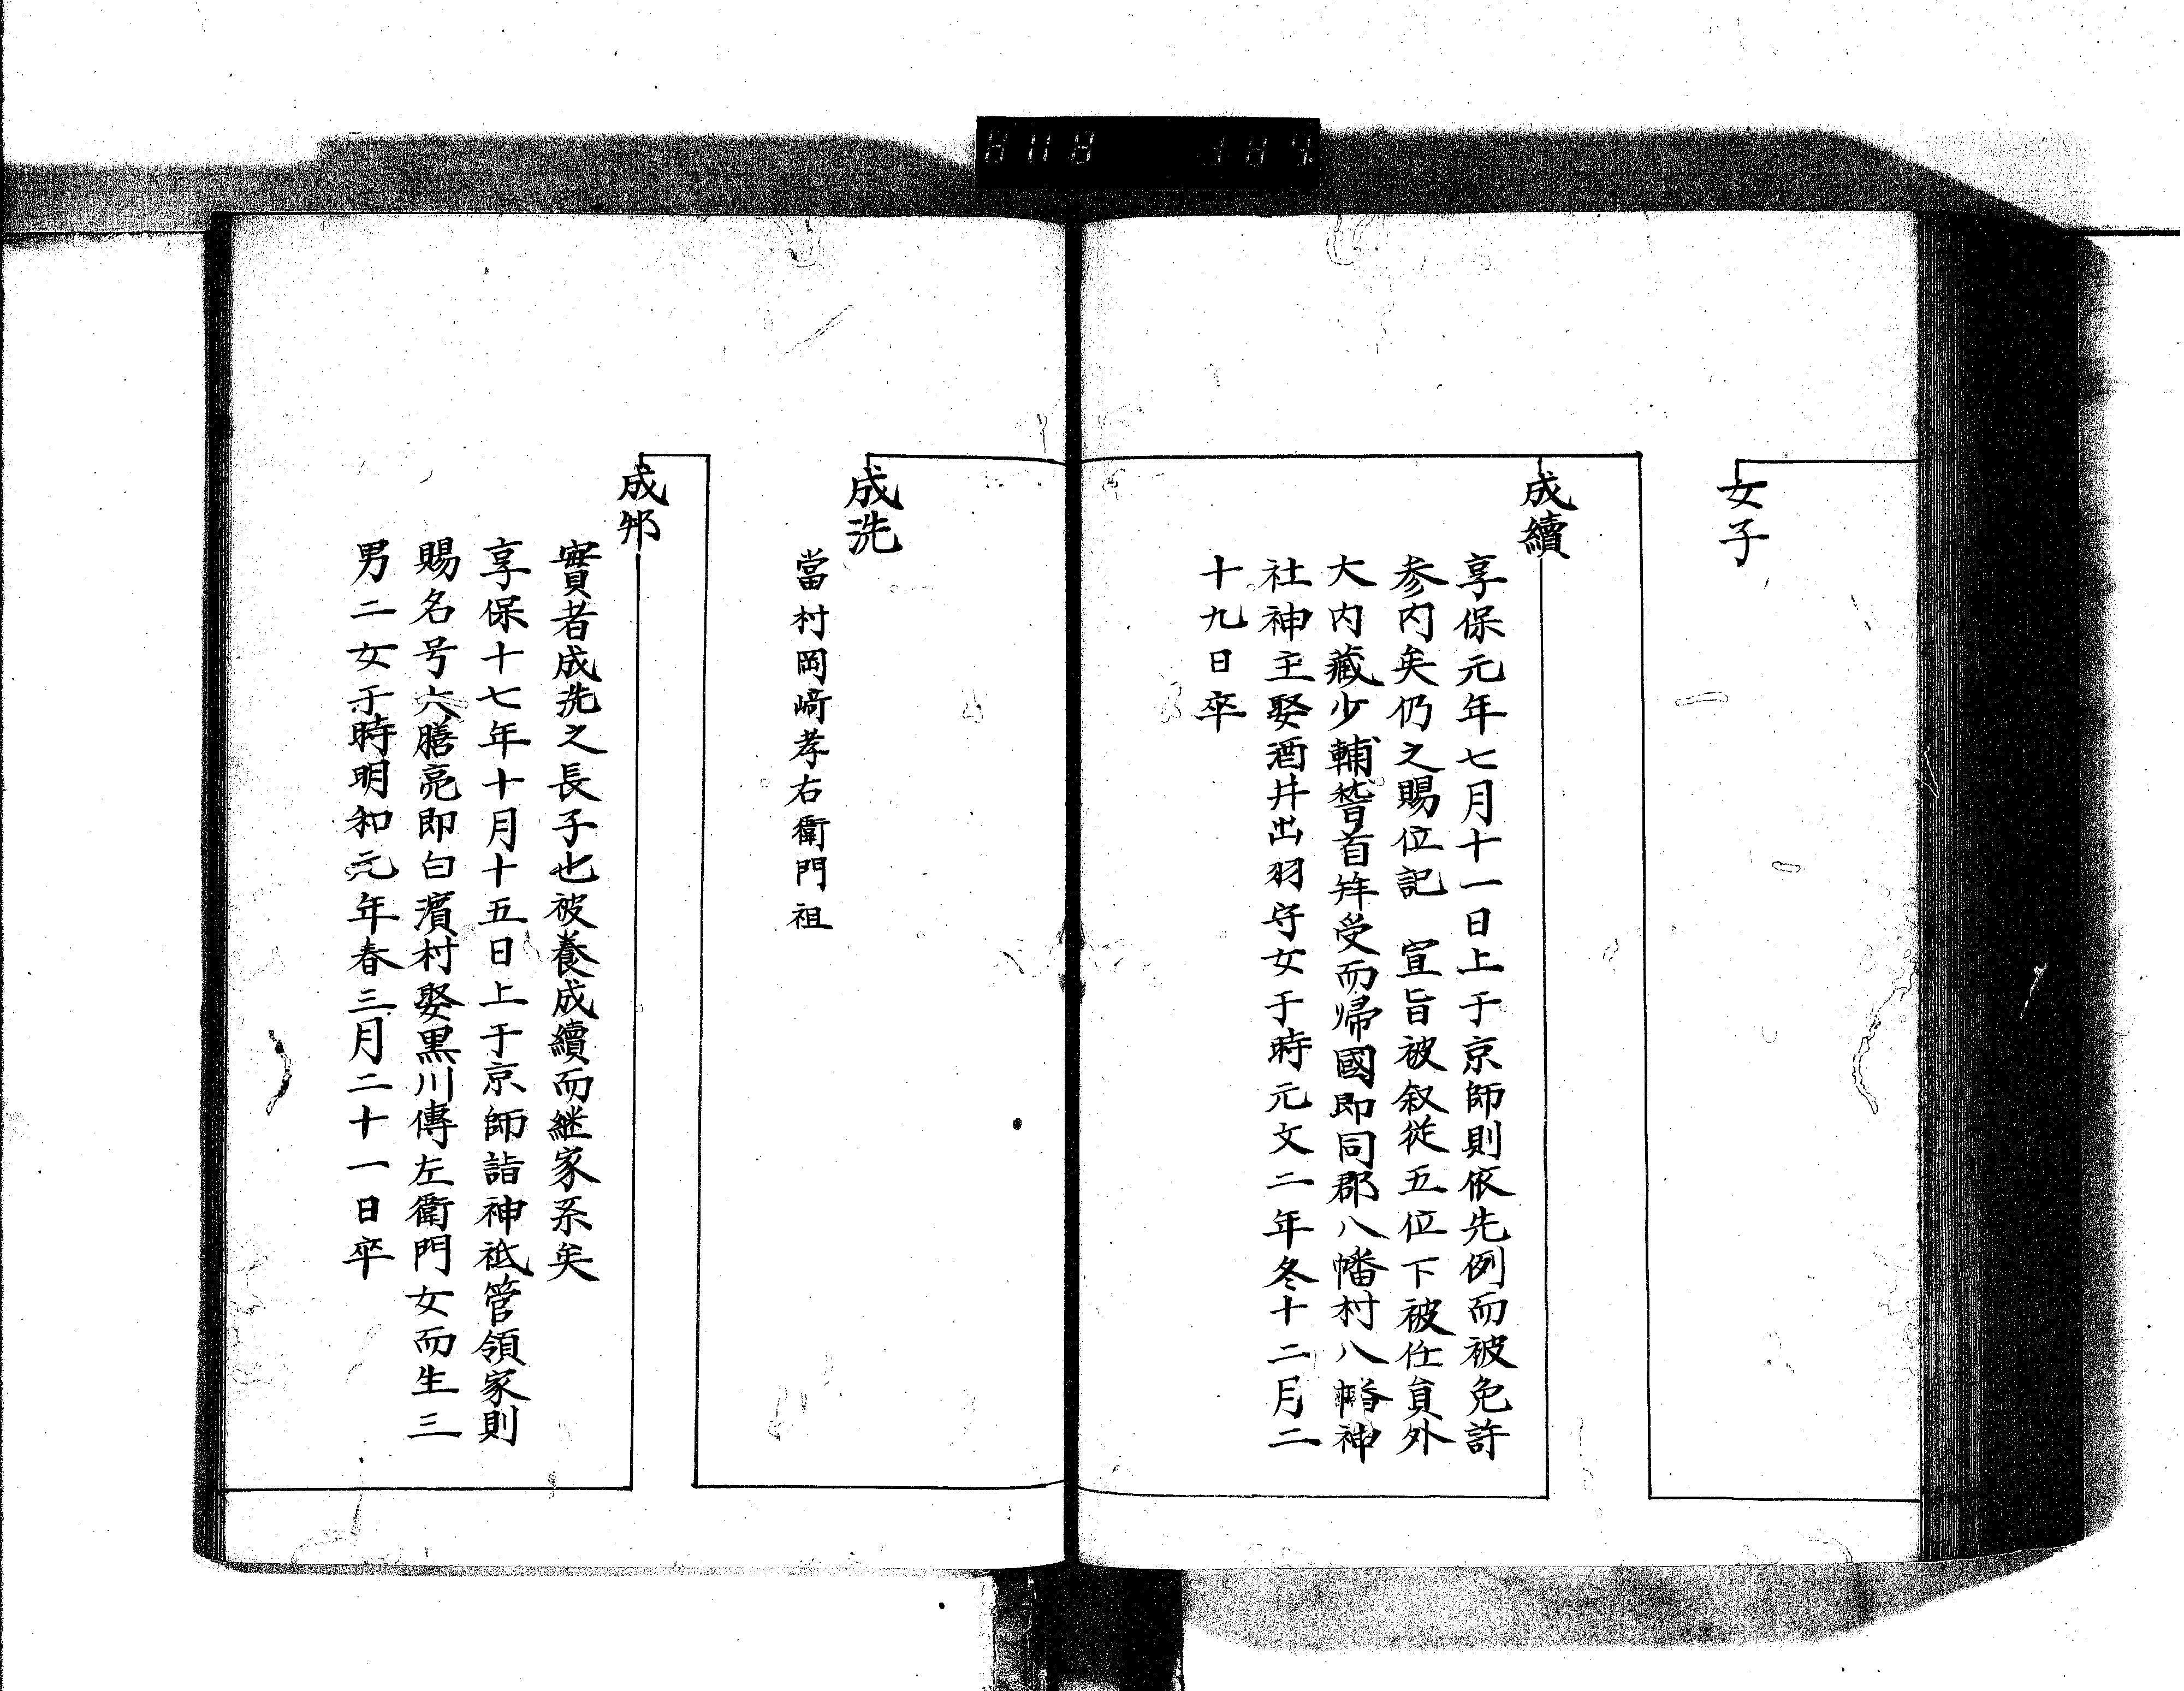 女子
成續
享保元年七月十一日上于京師則依先例而被免許
参内矣仍之賜位記　宣旨被叙従五位下被任員外
大内藏少輔 首拜受而帰國即同郡八幡村八幡神
社神主娶酒井出羽守女于時元文二年冬十二月二
十九日卒
成洗
當村岡﨑孝右衞門祖
成邦
實者成洗之長子也被養成續而継家系矣
享保十七年十月十五日上于京師詣神祗管領家則
賜名号大膳亮即白濱村娶黒川傳左衞門女而生三
男二女于時明和元年春三月二十一日卒